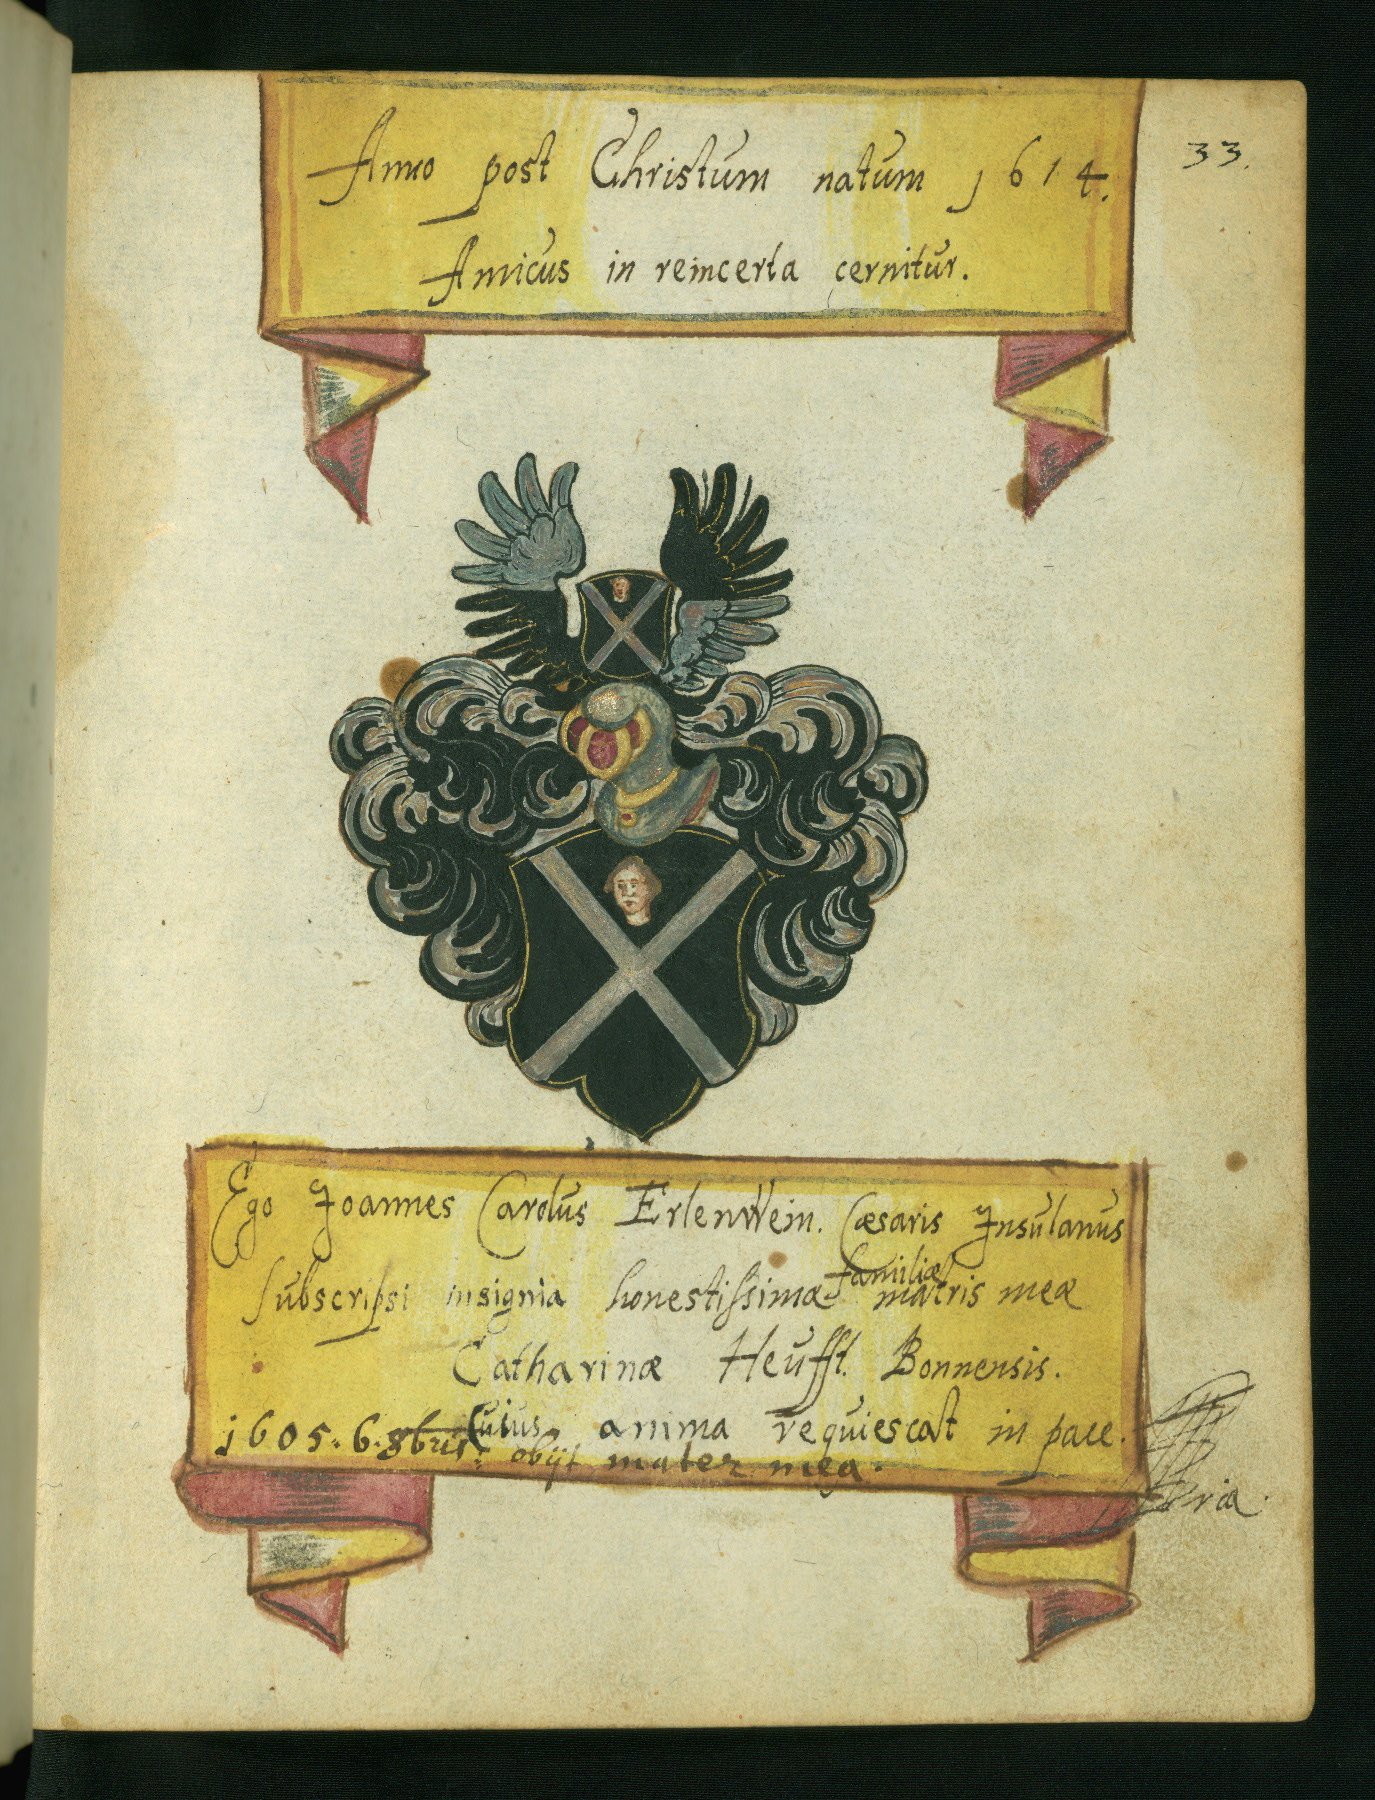 33.
Anno post Christum natum 1614.
Amicus in reincerta cernitur.
Ego Joannes Carolus Erlenwein. Cæsaris Insulanus
subscripsi insignia honestissimæ familiæ matris meæ
Catharinæ Heufft. Bonnensis.
Cuius anima requiescat in pace.
1605. 6. 8bris: obijt mater mea.
ria.